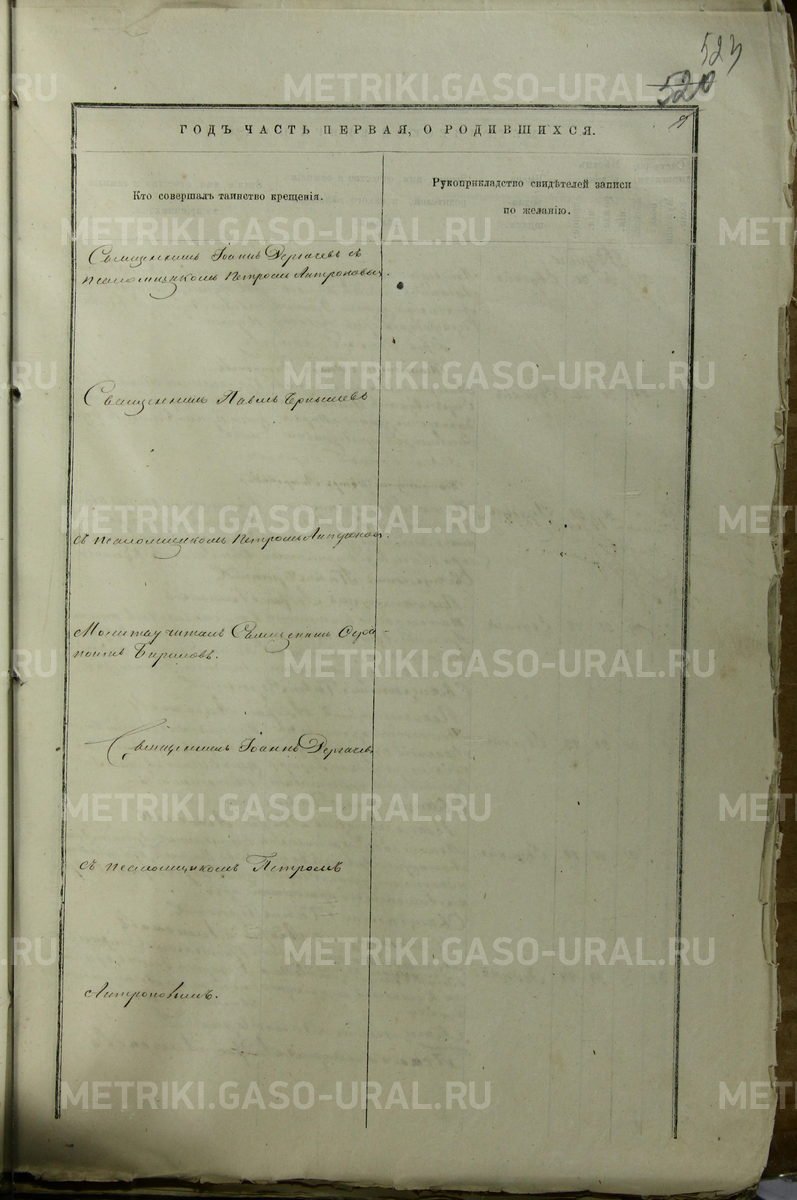 523
520
ГОДЪ ЧАСТЬ ПЕРВАЯ, О РОДИВШИХСЯ.
Кто совершалъ таинство крещенія.
Рукоприкладство свидѣтелей записи
по желанію.
Священникъ Іоаннъ Дергачевъ съ
псаломщикомъ Петромъ Антроповымъ
Священникъ Павелъ
съ псаломщикомъ Петромъ
Молитву читалъ Священникъ
Священникъ Іоаннъ Дергачевъ
съ псаломщикомъ Петромъ
Антроповымъ.
METRIKI.GASO-URAL.RU